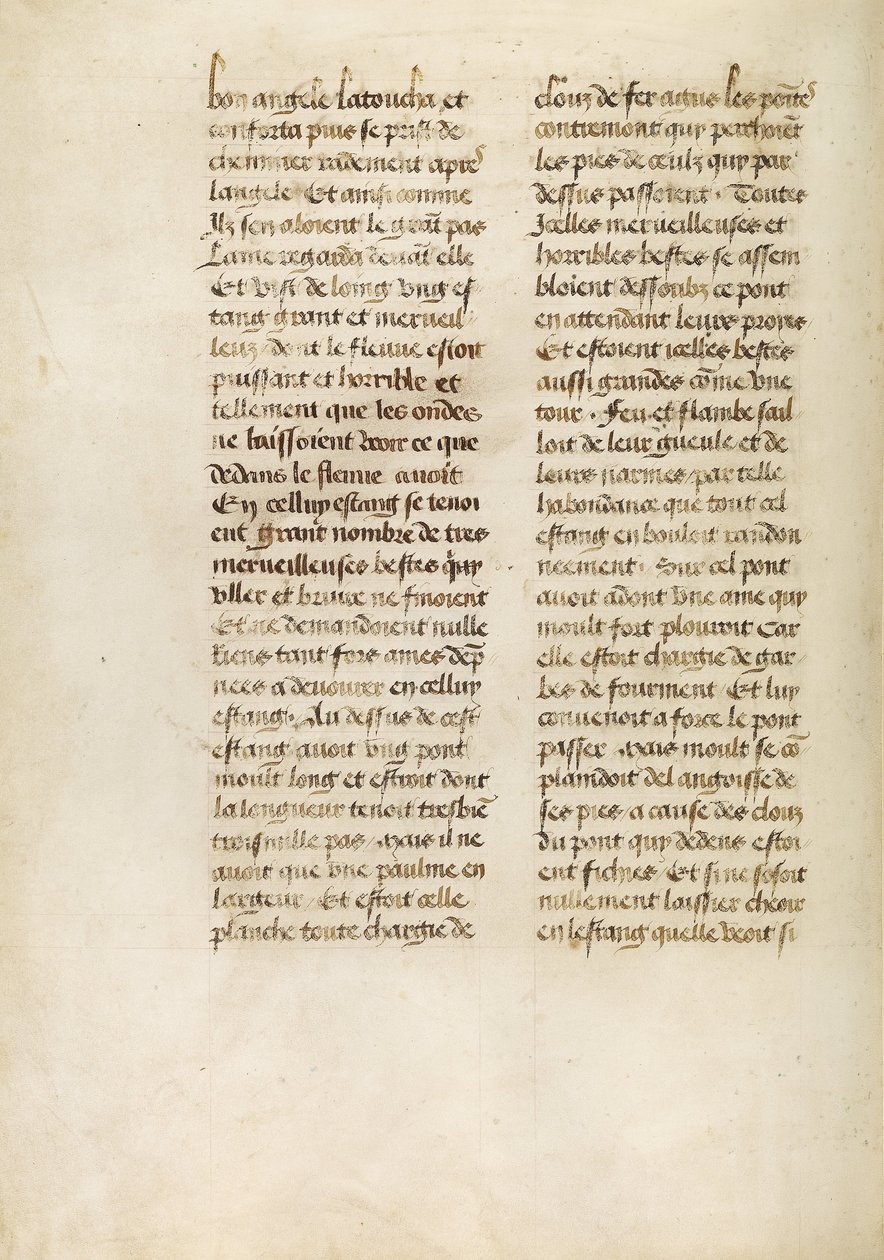 bon angele latoucha et
conforta puis se prist de
cheminer radement apres
langele Et ainsi comme
Ilz sen aloient le grāt pas
Lame regarda deuāt elle
Et vist de loing vng es
tang grant et merueil
leuz / dont le fleuue estoit
puissant et horrible et
tellement que les ondes
ne laissoient veoir ce que
dedans le fleuue auoit
En celluy estang se tenoi
ent grant nombre de tres
merueilleuses bestes quy
vller et bruire ne finoient
Et ne demandoient nulle
riens tant fors ames dāp
nees a deuourer en celluy
estang. Au dessus de cest
estang auoit vng pont
moult long et estroit dont
la longueur tenoit tresbiē
trois mille pas / Mais il ne
auoit que vne paulme en
largeur / Et estoit celle
planche toute chargie de
clouz de fer agus les pointes
contremont quy perchoiēt
les pies de ceulz quy par
dessus passoient. Toutes
Icelles merueilleuses et
horribles bestes se assem
bloient dessoubz ce pont
en attendant leurs proyes /
Et estoient icelles bestes
aussi grandes cōme vne
tour. Feu et flambe sail
loit de leur gueule et de
leurs narines / par telle
habondance que tout cel
estang en bouloit randon
neement. Sur cel pont
auoit adont vne ame quy
moult fort plouroit Car
elle estoit chargie de gar
bes de fourment / Et luy
conuenoit a force le pont
passer Mais moult se cō
plaindoit del angoisse de
ses pies / a cause des clouz
du pont quy dedens estoi
ent fichies / Et si ne sosoit
nullement laissier cheoir
en lestang quelle veoit si